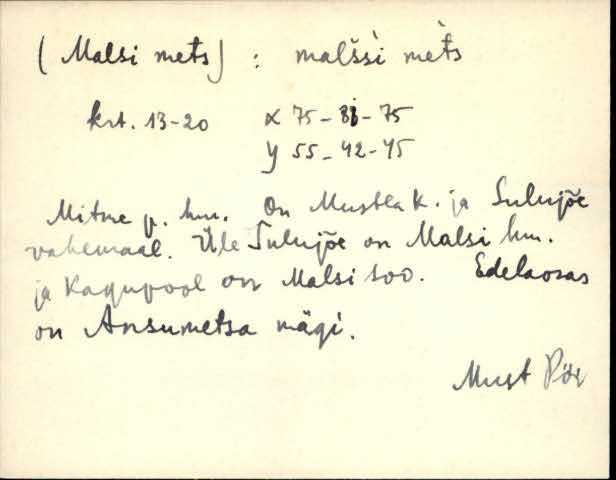 (Malsi mets) : malšśi mèt̀s
krt. 13-20 x 75-81-75
y 55-42-45
Mitme p. hm. On Mustla k. ja Sulujõe
vahemaal. Üle Sulujõe on Malsi hm.
ja Kagupool on Malsi soo. Edelaosas
on Ansumetsa mägi.
Must Pöi